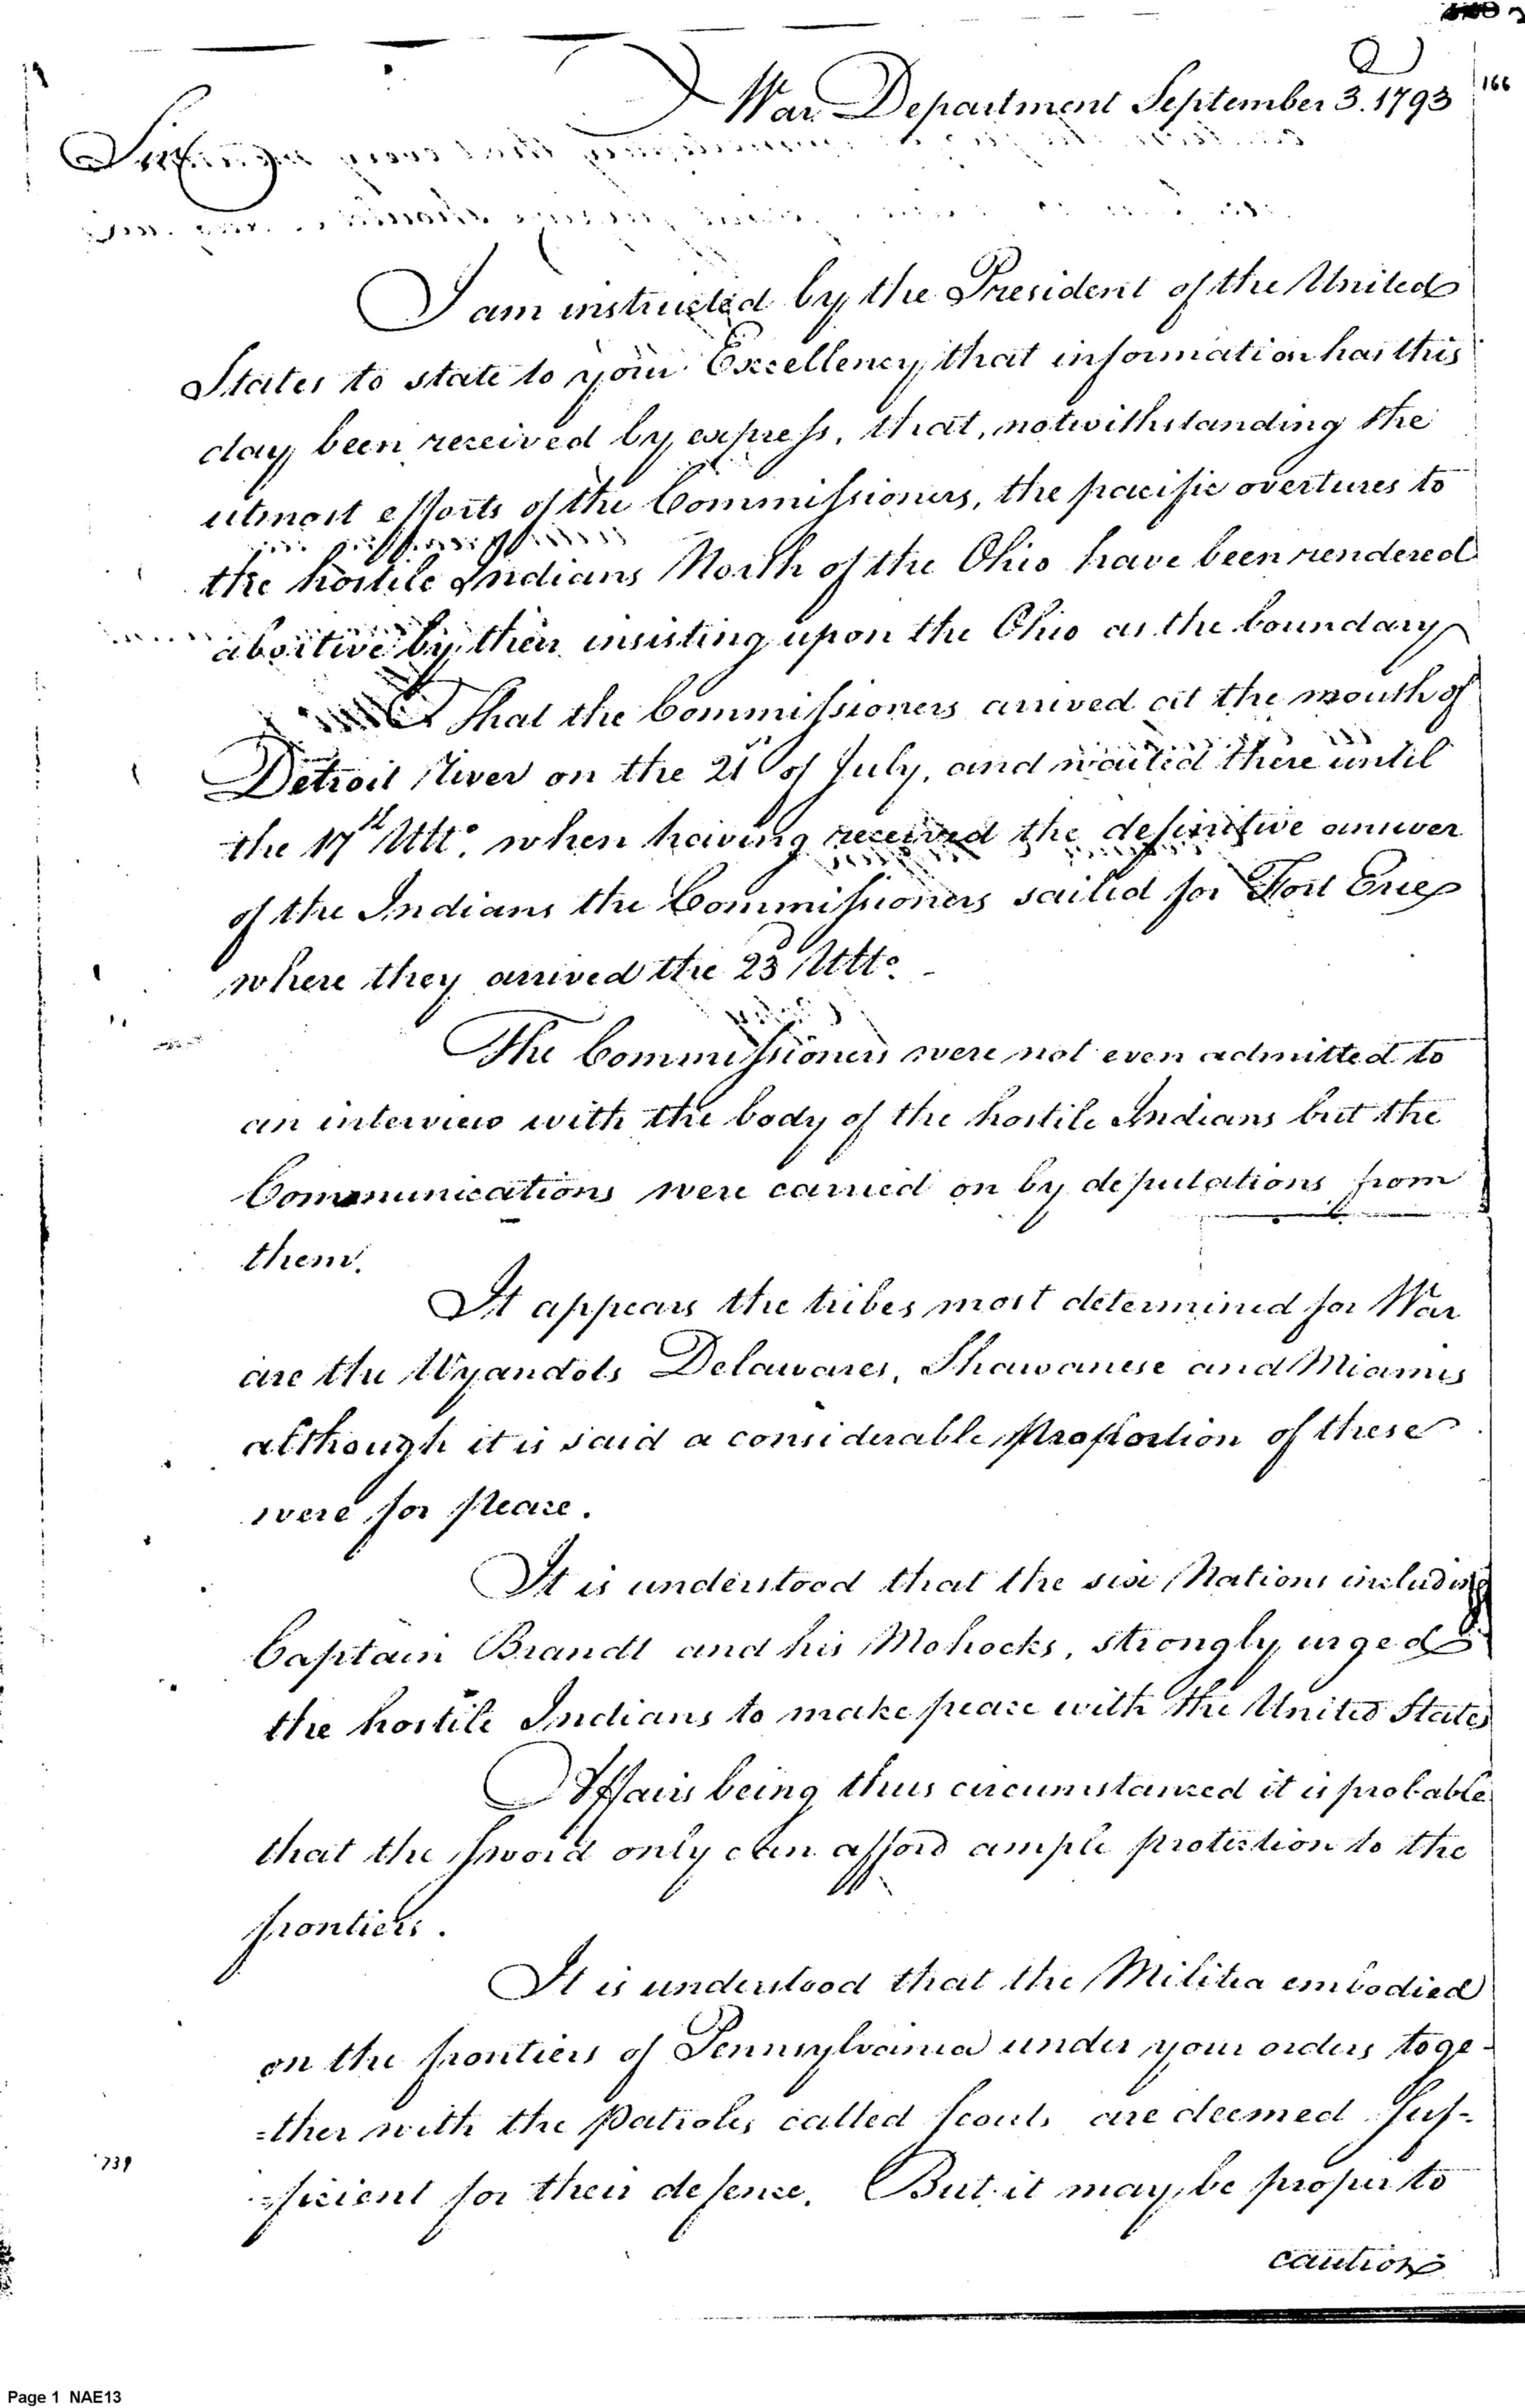 166
War Department September 3. 1793
Sir
I am instructed by the President of the United
States to state to your Excellency that information has this
day been received by express, that, notwithstanding the
utmost efforts of the Commissioners, the pacific overtures to
the hostile Indians North of the Ohio have been rendered
abortive by their insisting upon the Ohio as the boundary
That the Commissioners arrived at the mouth of
Detroit River on the 21st of July, and waited there until
the 17th Ulto. when having received the definitive answer
of the Indians the Commissioners sailed for Fort Erie
where they arrived the 23d Ulto.
The Commissioners were not even admitted to
an interview with the body of the hostile Indians but the
Communications were carried on by deputations from
them.
It appears the tribes most determined for War
are the Wyandots Delawares, Shawanese and Miamis
although it is said a considerable proportion of these
were for peace.
It is understood that the six Nations including
Captain Brandt and his Mohocks, strongly urged
the hostile Indians to make peace with the United States
Affairs being thus circumstanced it is probable
that the sword only can afford ample protection to the
frontiers.
It is understood that the Militia embodied
on the frontiers of Pennsylvania under your orders toge-
=ther with the Patroles called scouts are deemed suf-
=ficient for their defence. But it may be proper to
739
caution
Page 1 NAE13